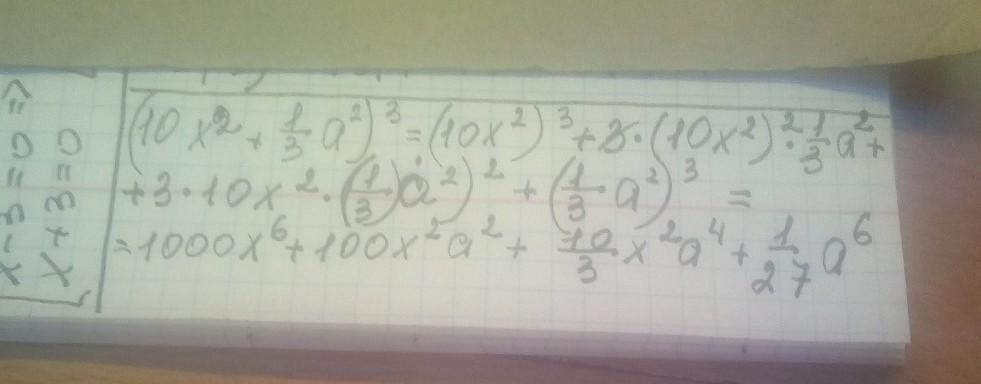 (10x² + 1/3 a²)³ = (10x²)³ + 3·(10x²)²·1/3 a² +
+ 3·10x²·(1/3 a²)² + (1/3·a²)³ =
= 1000x⁶ + 100x²a² + 10/3 x²a⁴ + 1/27 a⁶
x-3=0 =>
x+3=0